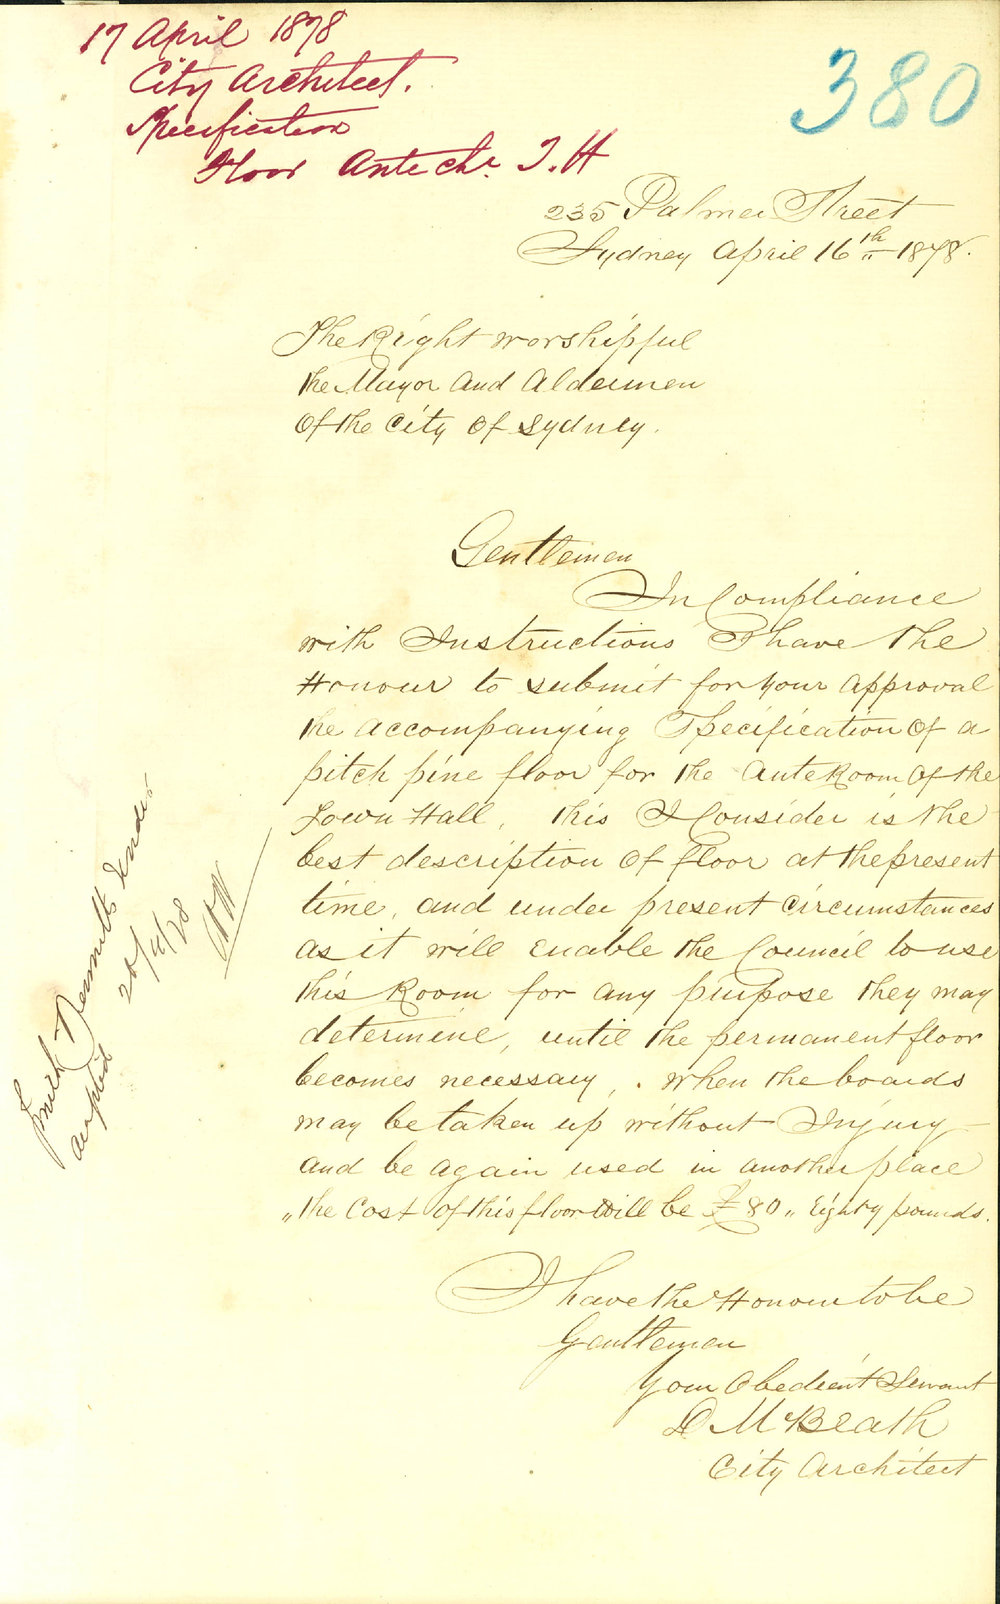 17 April 1878
City Architect.
Specification
Floor Ante chr. T.H
380
235 Palmer Street
Sydney April 16th 1878.
The Right worshipful
the Mayor and Aldermen
Of the City Of Sydney.
Gentlemen
In Compliance
with Instructions I have the
Honour to submit for your approval
the accompanying Specification Of a
pitch pine floor for the Ante Room Of the
Town Hall, this I Consider is the
best description Of floor at the present
time, and under present Circumstances
as it will enable the Council to use
this Room for any purpose they may
determine, until the permanent floor
becomes necessary, . when the boards
may be taken up without Injury
and be again used in another place
„the Cost of this floor Will be £80„ Eighty pounds.
I have the Honour to be
Gentlemen
Your Obedient Servant
D McBeath
City Architect
Tender
accepted